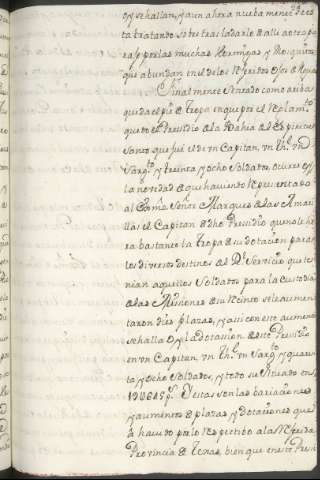 oy se hallan, y aun ahora nuebamente se es
ta tratando sobre trasladarle de alli a otra pa
rage por las muchas Hormigas y Mosquitos
que abundan en el de los referidos Ojos de Agua
Finalmente sentado como arriba
queda el pie de Tropa en que por el Reglamto
quedo el Presidio de la Bahia del Espiritu
Santo que fue el de un Capitan, un Thte un
Sargto y treinta y ocho Soldados, ocurre oy
la novedad de que haviendo representado
al Exmo Señor Marques de las Amari
llas el Capitan de dho Presidio que no le he
ra bastante la Tropa de su dotacion para
los diversos destinos del Rl Servicio que te
nian aquellos Soldados para la Custodia
de las Misiones de su reino se le aumen
taron diez plazas, y asi con este aumento
se halla oy la dotacion de este Presidio
en un Capitan, un Thte un Sargto y quaren
ta y ocho Soldados, y todo su Situado en
Estas son las bariaciones
y aumentos de plazas y dotaciones que
a havido por lo respectibo a la referida
Provincia de Texas, bien que en este Presi